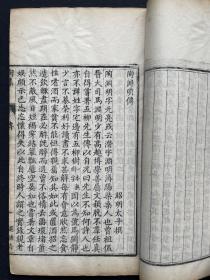 陶淵明傳
昭明太子撰
陶淵明字元亮或云潛字淵明潯陽柴桑人也曾祖侃
晉大司馬淵明少有高趣博學善屬文穎脫不
羣任真自得嘗著五柳先生傳以自況曰先生不知何許人
也不詳姓字宅邊有五柳樹因以為號焉閑靜
少言不慕榮利好讀書不求甚解每有會意欣然忘食
性嗜酒而家貧不能恒得親舊知其如此或置酒招之
造飲輒盡期在必醉既醉而退曾不吝情去留環堵蕭
然不蔽風日短褐穿結簞瓢屢空晏如也嘗著文章自
娛頗示己志忘懷得失以此自終時人謂之實錄親老